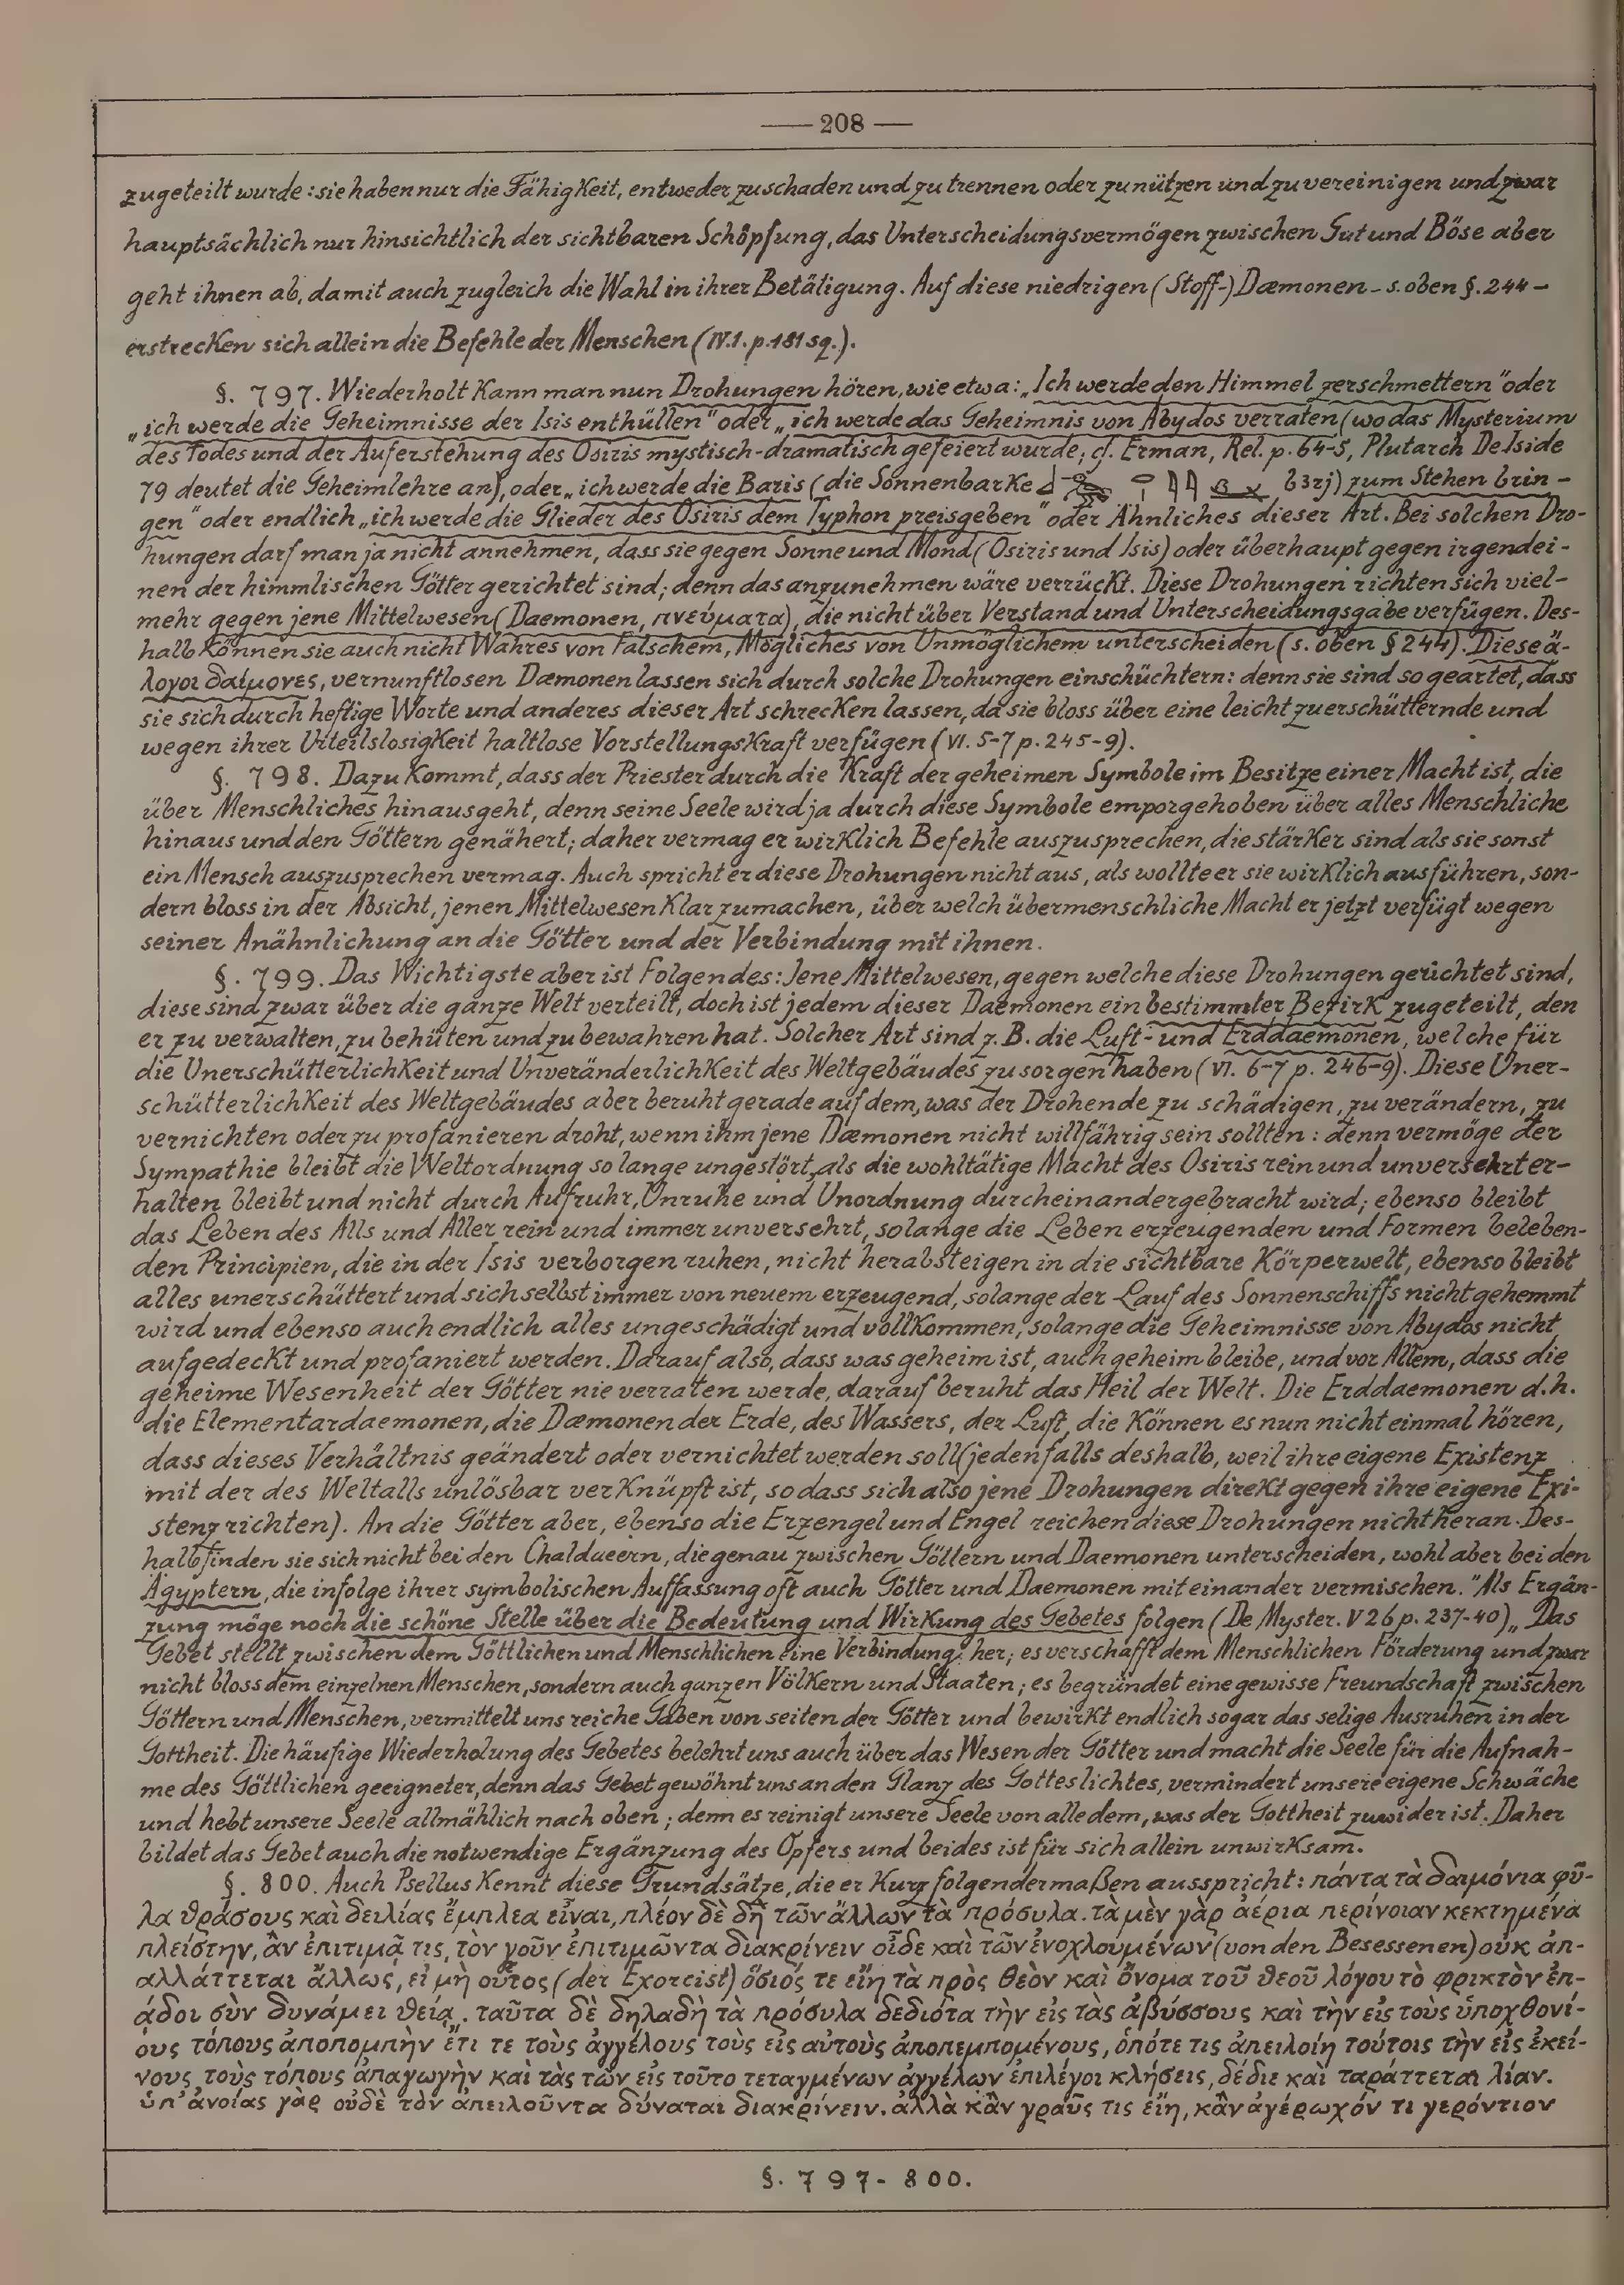 — 208 —
zugeteilt wurde: sie haben nur die Fähigkeit, entweder zu schaden und zu trennen oder zu nützen und zu vereinigen und zwar
hauptsächlich nur hinsichtlich der sichtbaren Schöpfung, das Unterscheidungsvermögen zwischen Gut und Böse aber
geht ihnen ab, damit auch zugleich die Wahl in ihrer Betätigung. Auf diese niedrigen (Stoff-) Dæmonen - s. oben §. 244 -
erstrecken sich allein die Befehle der Menschen (IV.1. p. 181 sq.).
§. 797. Wiederholt kann man nun Drohungen hören, wie etwa: „Ich werde den Himmel zerschmettern" oder
„ich werde die Geheimnisse der Isis enthüllen" oder „ich werde das Geheimnis von Abydos verraten (wo das Mysterium
des Todes und der Auferstehung des Osiris mystisch-dramatisch gefeiert wurde; cf. Erman, Rel. p. 64-5, Plutarch De Iside
79 deutet die Geheimlehre an), oder „ich werde die Baris (die Sonnenbarke b3rj) zum Stehen brin-
gen" oder endlich „ich werde die Glieder des Osiris dem Typhon preisgeben" oder Ähnliches dieser Art. Bei solchen Dro-
hungen darf man ja nicht annehmen, dass sie gegen Sonne und Mond (Osiris und Isis) oder überhaupt gegen irgendei-
nen der himmlischen Götter gerichtet sind; denn das anzunehmen wäre verrückt. Diese Drohungen richten sich viel-
mehr gegen jene Mittelwesen (Daemonen, πνεύματα), die nicht über Verstand und Unterscheidungsgabe verfügen. Des-
halb können sie auch nicht Wahres von Falschem, Mögliches von Unmöglichem unterscheiden (s. oben § 244). Diese ἄ-
λογοι δαίμονες, vernunftlosen Dæmonen lassen sich durch solche Drohungen einschüchtern: denn sie sind so geartet, dass
sie sich durch heftige Worte und anderes dieser Art schrecken lassen, da sie bloss über eine leicht zu erschütternde und
wegen ihrer Urteilslosigkeit haltlose Vorstellungskraft verfügen (VI. 5-7 p. 245-9).
§. 798. Dazu kommt, dass der Priester durch die Kraft der geheimen Symbole im Besitze einer Macht ist, die
über Menschliches hinausgeht, denn seine Seele wird ja durch diese Symbole emporgehoben über alles Menschliche
hinaus und den Göttern genähert; daher vermag er wirklich Befehle auszusprechen, die stärker sind als sie sonst
ein Mensch auszusprechen vermag. Auch spricht er diese Drohungen nicht aus, als wollte er sie wirklich ausführen, son-
dern bloss in der Absicht, jenen Mittelwesen klar zu machen, über welch übermenschliche Macht er jetzt verfügt wegen
seiner Anähnlichung an die Götter und der Verbindung mit ihnen.
§. 799. Das Wichtigste aber ist Folgendes: Jene Mittelwesen, gegen welche diese Drohungen gerichtet sind,
diese sind zwar über die ganze Welt verteilt, doch ist jedem dieser Daemonen ein bestimmter Bezirk zugeteilt, den
er zu verwalten, zu behüten und zu bewahren hat. Solcher Art sind z. B. die Luft- und Erddaemonen, welche für
die Unerschütterlichkeit und Unveränderlichkeit des Weltgebäudes zu sorgen haben (VI. 6-7 p. 246-9). Diese Uner-
schütterlichkeit des Weltgebäudes aber beruht gerade auf dem, was der Drohende zu schädigen, zu verändern, zu
vernichten oder zu profanieren droht, wenn ihm jene Dæmonen nicht willfährig sein sollten: denn vermöge der
Sympathie bleibt die Weltordnung so lange ungestört, als die wohltätige Macht des Osiris rein und unversehrt er-
halten bleibt und nicht durch Aufruhr, Unruhe und Unordnung durcheinandergebracht wird; ebenso bleibt
das Leben des Alls und Aller rein und immer unversehrt, solange die Leben erzeugenden und Formen beleben-
den Principien, die in der Isis verborgen ruhen, nicht herabsteigen in die sichtbare Körperwelt, ebenso bleibt
alles unerschüttert und sich selbst immer von neuem erzeugend, solange der Lauf des Sonnenschiffs nicht gehemmt
wird und ebenso auch endlich alles ungeschädigt und vollkommen, solange die Geheimnisse von Abydos nicht
aufgedeckt und profaniert werden. Darauf also, dass was geheim ist, auch geheim bleibe, und vor Allem, dass die
geheime Wesenheit der Götter nie verraten werde, darauf beruht das Heil der Welt. Die Erddaemonen d.h.
die Elementardaemonen, die Dæmonen der Erde, des Wassers, der Luft, die können es nun nicht einmal hören,
dass dieses Verhältnis geändert oder vernichtet werden soll (jedenfalls deshalb, weil ihre eigene Existenz
mit der des Weltalls unlösbar verknüpft ist, so dass sich also jene Drohungen direkt gegen ihre eigene Exi-
stenz richten). An die Götter aber, ebenso die Erzengel und Engel reichen diese Drohungen nicht heran. Des-
halb finden sie sich nicht bei den Chaldaeern, die genau zwischen Göttern und Daemonen unterscheiden, wohl aber bei den
Ägyptern, die infolge ihrer symbolischen Auffassung oft auch Götter und Daemonen mit einander vermischen." Als Ergän-
zung möge noch die schöne Stelle über die Bedeutung und Wirkung des Gebetes folgen (De Myster. V 26 p. 237-40) „Das
Gebet stellt zwischen dem Göttlichen und Menschlichen eine Verbindung her; es verschafft dem Menschlichen Förderung und zwar
nicht bloss dem einzelnen Menschen, sondern auch ganzen Völkern und Staaten; es begründet eine gewisse Freundschaft zwischen
Göttern und Menschen, vermittelt uns reiche Gaben von seiten der Götter und bewirkt endlich sogar das selige Ausruhen in der
Gottheit. Die häufige Wiederholung des Gebetes belehrt uns auch über das Wesen der Götter und macht die Seele für die Aufnah-
me des Göttlichen geeigneter, denn das Gebet gewöhnt uns an den Glanz des Gotteslichtes, vermindert unsere eigene Schwäche
und hebt unsere Seele allmählich nach oben; denn es reinigt unsere Seele von alledem, was der Gottheit zuwider ist. Daher
bildet das Gebet auch die notwendige Ergänzung des Opfers und beides ist für sich allein unwirksam.
§. 800. Auch Psellus kennt diese Grundsätze, die er kurz folgendermaßen ausspricht: πάντα τὰ δαιμόνια φῦ-
λα θράσους καὶ δειλίας ἔμπλεα εἶναι, πλέον δὲ δὴ τῶν ἄλλων τὰ πρόσυλα. τὰ μὲν γὰρ ἀέρια περίνοιαν κεκτημένα
πλείστην, ἂν ἐπιτιμᾷ τις, τὸν γοῦν ἐπιτιμῶντα διακρίνειν οἶδε καὶ τῶν ἐνοχλουμένων (von den Besessenen) οὐκ ἀπ-
αλλάττεται ἄλλως, εἰ μὴ οὗτος (der Exorcist) ὅσιός τε εἴη τὰ πρὸς θεὸν καὶ ὄνομα τοῦ θεοῦ λόγου τὸ φρικτὸν ἐπ-
ᾴδοι σὺν δυνάμει θείᾳ. ταῦτα δὲ δηλαδὴ τὰ πρόσυλα δεδιότα τὴν εἰς τὰς ἀβύσσους καὶ τὴν εἰς τοὺς ὑποχθονί-
ους τόπους ἀποπομπὴν ἔτι τε τοὺς ἀγγέλους τοὺς εἰς αὐτοὺς ἀποπεμπομένους, ὁπότε τις ἀπειλοίη τούτοις τὴν εἰς ἐκεί-
νους τοὺς τόπους ἀπαγωγὴν καὶ τὰς τῶν εἰς τοῦτο τεταγμένων ἀγγέλων ἐπιλέγοι κλήσεις, δέδιε καὶ ταράττεται λίαν.
ὑπ' ἀνοίας γὰρ οὐδὲ τὸν ἀπειλοῦντα δύναται διακρίνειν. ἀλλὰ κἂν γραῦς τις εἴη, κἂν ἀγέρωχόν τι γερόντιον
§. 797- 800.